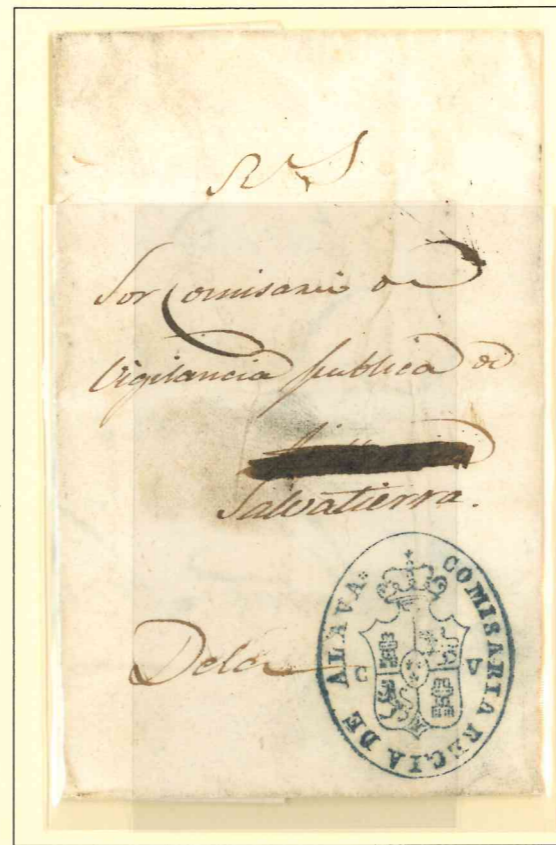 R S
Sor Comisario de
Vigilancia publica de
Salvatierra.
Dela
COMISARIA REGIA DE ALAVA.
C V